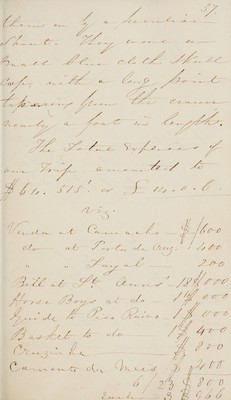 57.
them on by a peculiar
Shout. They wore a
Small blue cloth Skull
Cap, with a long point
tapering from the crown
nearly a foot in length.
The Total Expenses of
our Trip, amounted to
or £
Viz.
Venda at Camacho 600
do at Porto da Cruz 400
" " Fayal 200
Bill at St Anns' 18 000
Horse Boys at do 000
Guide to Pico Ruivo 000
Basket to do 400
800
200
6/ 23 800
Each 3 966